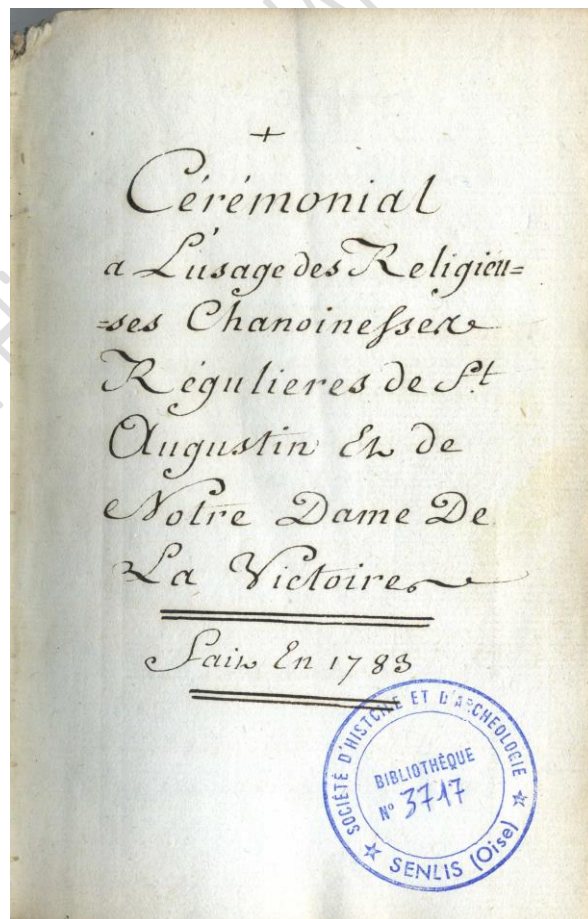 +
Cérémonial
a L'usage des Religieu=
=ses Chanoinesses
Régulieres de St.
Augustin Et de
Notre Dame De
La Victoire
Fait En 1783
SOCIÉTÉ D'HISTOIRE ET D'ARCHEOLOGIE
BIBLIOTHÈQUE
N° 3717
SENLIS (Oise)